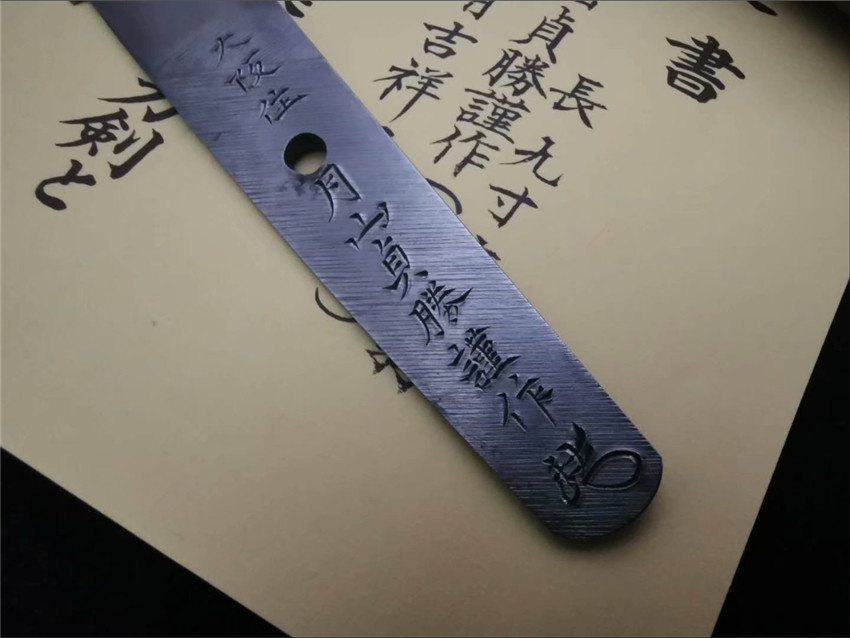 大阪住
月山貞勝謹作
書
長九寸
貞勝謹作
吉祥
刀剣と